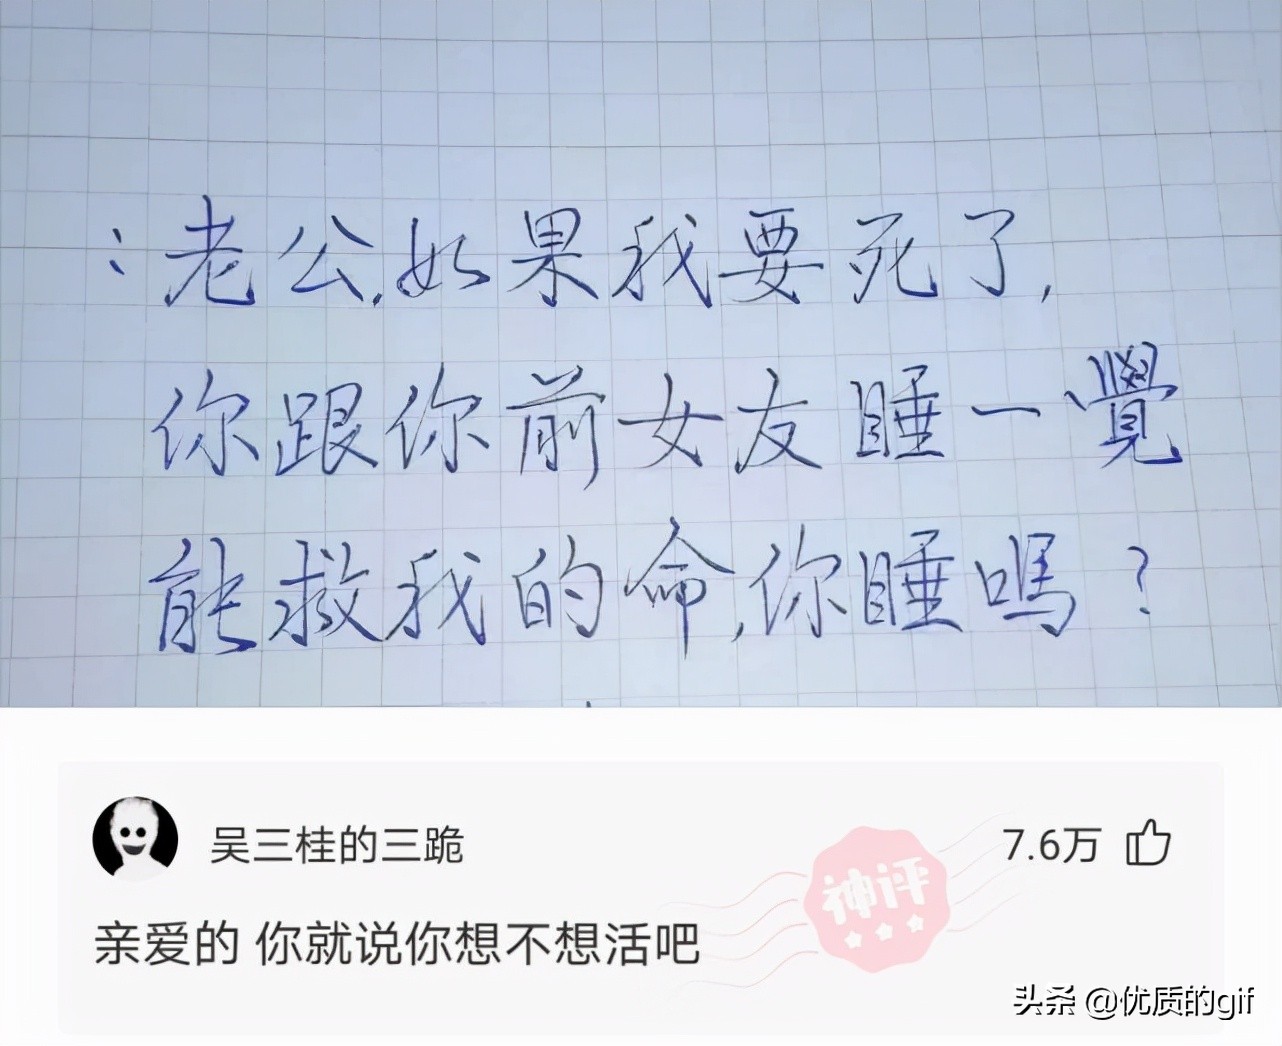 :老公,如果我要死了,
你跟你前女友睡一覺
能救我的命,你睡嗎?
吴三桂的三跪
7.6万
神评
亲爱的 你就说你想不想活吧
头条 @优质的gif